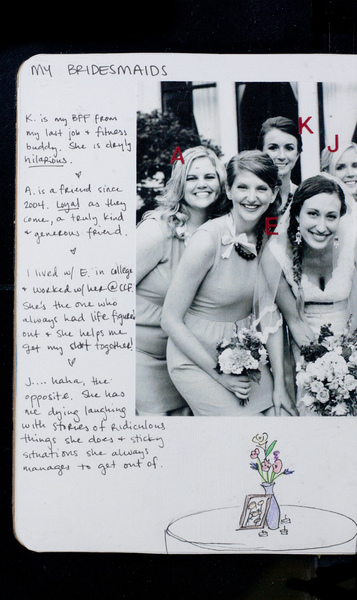 MY BRIDESMAIDS
K. is my BFF from
my last job & fitness
buddy. She is dryly
hilarious.
A. is a friend since
2004. Loyal as they
come, a truly kind
& generous friend.
I lived w/ E. in college
& worked w/ her @ CCF.
She's the one who
always had life figured
out & she helps me
get my shit together!
J.... haha, the
opposite. She has
me dying laughing
with stories of ridiculous
things she does & sticky
situations she always
manages to get out of.
K
J
A
E